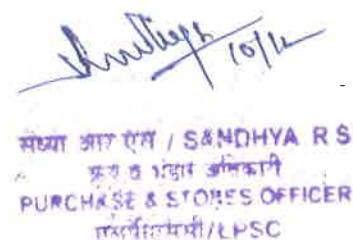 10/12
संध्या आर एस / SANDHYA R S
क्रय व भंडार अधिकारी
PURCHASE & STORES OFFICER
एलपीएससी/LPSC